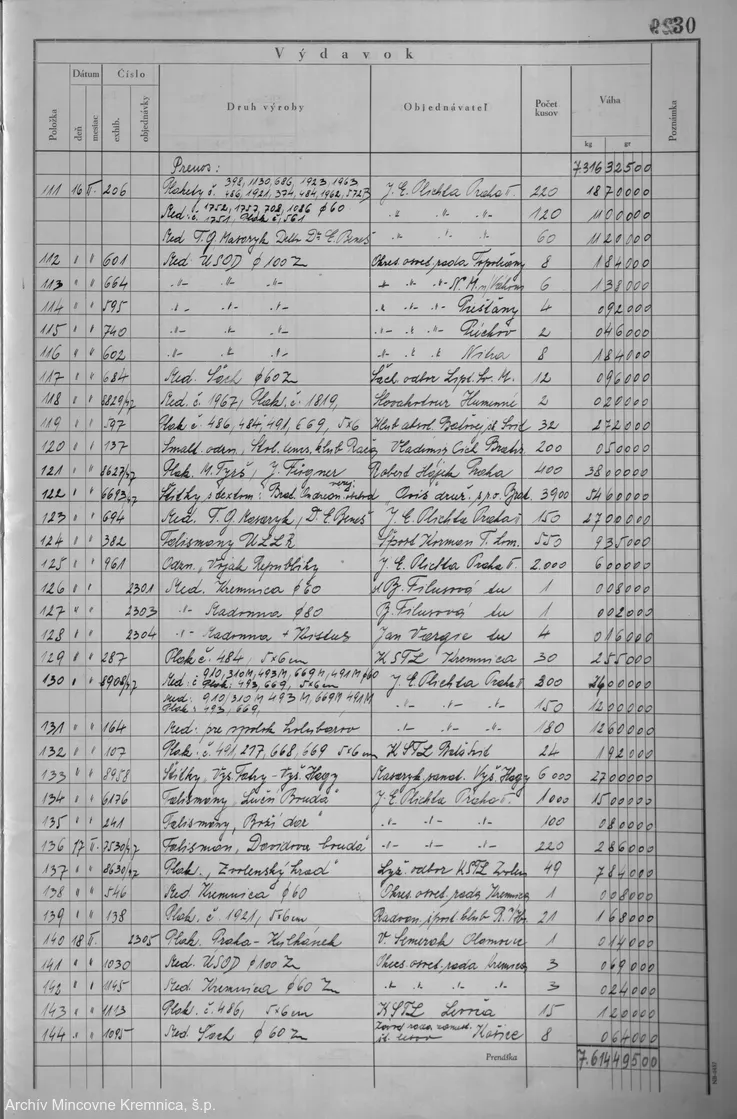 30
Výdavok
Položka Dátum deň mesiac Číslo exhib. objednávky Druh výroby Objednávateľ Počet kusov Váha kg gr Poznámka
Prenos: 7316 32500
111 16 II. 206 Plakety č. 398, 1130, 686, 1923, 1963, 486, 1921, 374, 484, 1962, 5723 J. E. Plichta Praha II. 220 18 70000
Med. č. 1752, 1757, 708, 1086 φ60 1751, Plak. č. 561 -"- -"- -"- 120 11 00000
Med. T. G. Masaryk Dr. E. Beneš -"- -"- -"- 60 11 20000
112 " " 601 Med. USOD φ 100 Zn Okres. osvet. rada Topoľčany 8 1 84000
113 " " 664 -"- -"- -"- -"- -"- -"- N. M. n/Váhom 6 1 38000
114 " " 595 -"- -"- -"- -"- -"- -"- Piešťany 4 0 92000
115 " " 740 -"- -"- -"- -"- -"- -"- Púchov 2 0 46000
116 " " 602 -"- -"- -"- -"- -"- -"- Nitra 8 1 84000
117 " " 684 Med. Šach φ60 Zn Šach. odbor Lipt. Sv. M. 12 0 96000
118 " " 8829/47 Med. č. 1967, Plak. č. 1819, Slovakotour Humenné 2 0 20000
119 " " 597 Plak. č. 486, 484, 491, 669, 5x6 Klub absol. 32 2 72000
120 " " 137 Smalt. odzn. klub Rača Vladimír Cích Bratis. 200 0 50000
121 " " 8627/47 Plak. M. Tyrš, J. Fügner Robert Hájek Praha 400 38 00000
122 " " 6693/47 Štítky s textom: Brat. druž. s.r.o. Brat. 3900 54 60000
123 " " 694 Med. T. G. Masaryk, Dr. E. Beneš J. E. Plichta Praha II 150 27 00000
124 " " 382 Talismany ULLŽ Šport Korman T. Lom. 550 9 35000
125 " " 961 Odzn. "Voják Republiky J. E. Plichta Praha II. 2.000 6 00000
126 " " 2301 Med. Kremnica φ60 B. Filusová tu 1 0 08000
127 " " 2303 -"- Madonna φ80 B. Filusová tu 1 0 02000
128 " " 2304 -"- Madonna + Kristus Jan Vargic tu 4 0 16000
129 " " 287 Plak č. 484, 5x6 cm KSTL Kremnica 30 2 55000
130 " " 8908/47 Med. č. 910, 310M, 493M, 669M, 491M φ60 Plak. 493, 669, 5x6 cm J. E. Plichta Praha II 300 24 00000
med: 910, 310 M, 493 M, 669M, 491 M Plak. 493, 669, -"- -"- -"- 150 12 00000
131 " " 164 Med. pre spolok holubárov -"- -"- -"- 180 12 60000
132 " " 107 Plak. č. 491, 277, 668, 669 5x6 cm KSTL 24 1 92000
133 " " 8958 Štítky "Vys. Tatry - Vyš. Hágy Masaryk. sanat. Vyš. Hágy 6000 27 00000
134 " " 6176 Talismany "Luční Bouda" J. E. Plichta Praha II. 1000 15 00000
135 " " 241 Talismany "Boží dar" -"- -"- -"- 100 0 80000
136 17 II. 7530/47 Talisman "Davidova bouda" -"- -"- -"- 220 2 86000
137 " " 8630/47 Plak. "Zvolenský hrad" Lyž. odbor KSTL Zvolen 49 7 84000
138 " " 546 Med. Kremnica φ60 Okres. osvet. rada Kremnica 1 0 08000
139 " " 138 Plak. č. 1921, 5x6 cm Radvan. sport. klub 21 1 68000
140 18 II. 2305 Plak. Praha - Kulhánek V. Semerák Olomouc 1 0 14000
141 " " 1030 Med. USOD φ100 Zn Okres. osvet. rada Kremnica 3 0 69000
142 " " 1145 Med. Kremnica φ60 Zn -"- -"- -"- -"- 3 0 24000
143 " " 1113 Plak. č. 486, 5x6 cm KSTL Levoča 15 1 20000
144 " " 1095 Med. Šach φ60 Zn Závod. rada Košice 8 0 64000
Prenáška 7.614 49500
Archív Mincovne Kremnica, š.p.